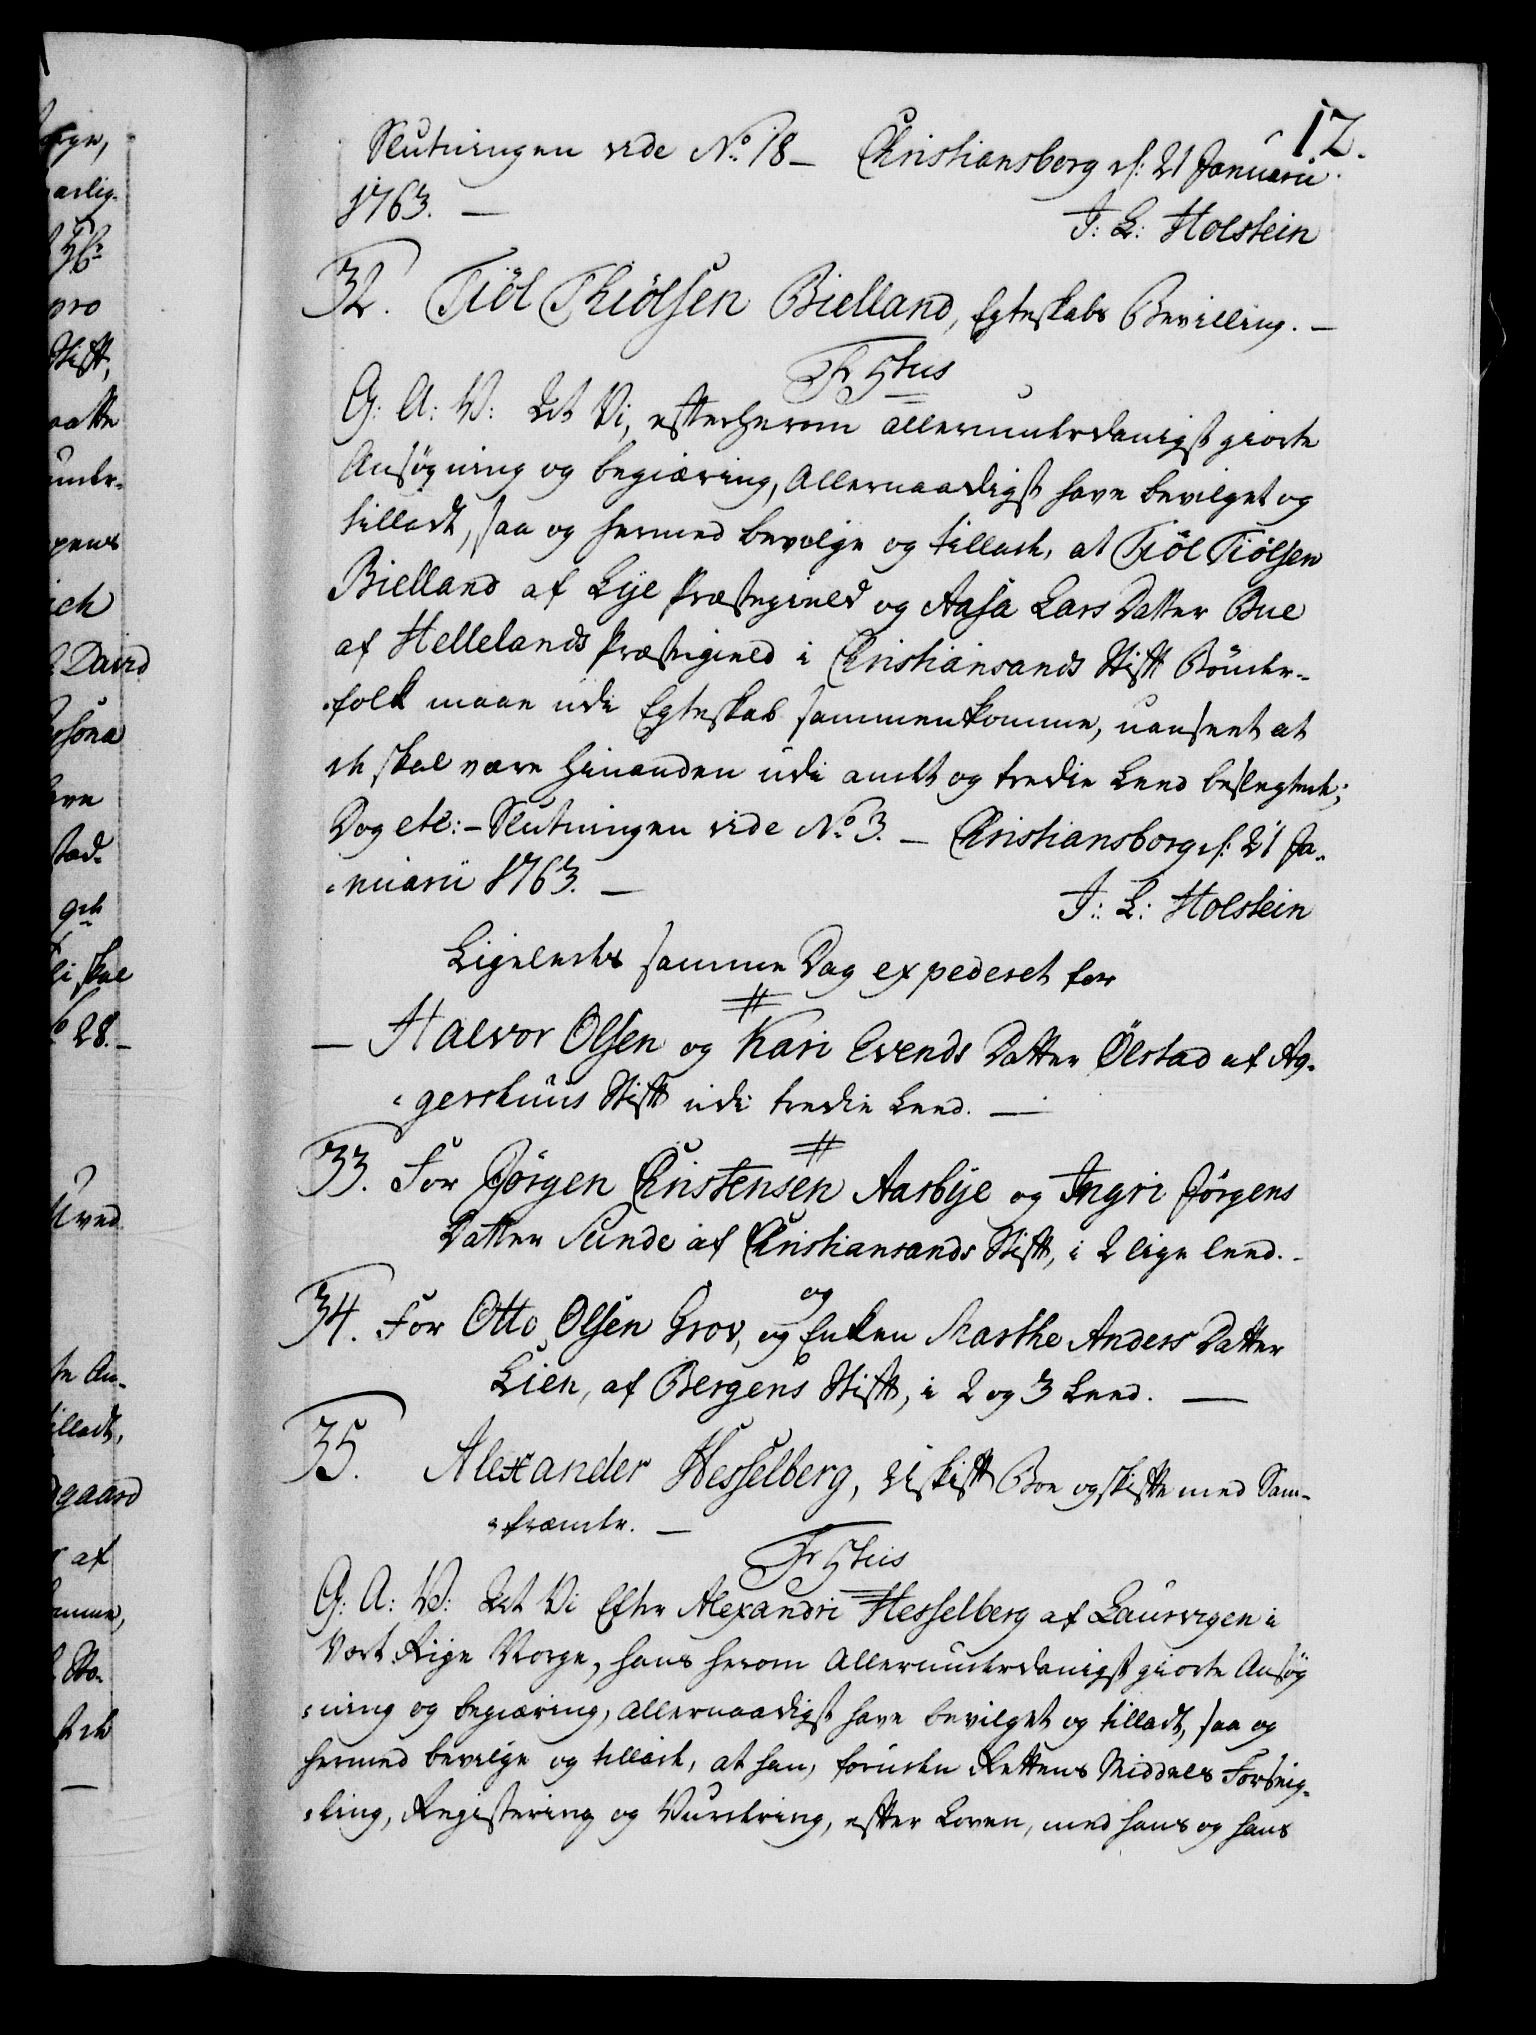 12.
Slutningen vide No. 18 – Christiansborg d: 21 Januarii
1763. –
J: L: Holstein
32. Tiöl Thiölsen Bielland, Egteskabs Bevilling. –
Fr 5tus
G: A: V: At Vi, efter herom allerunderdanigst giorte
Ansøgning og begiæring, Allernaadigst have bevilget og
tilladt, saa og hermed bevilge og tillade, at Tiöl Tiölsen
Bielland af Lye Præstegield og Aasa Lars Datter Bue
af Hellelands Præstegield i Christiansands Stift Bönder-
folk maae udi Egteskab sammenkomme, uanseet at
de skal være hinanden udi andet og tredie Leed beslegtede;
Dog etc: – Slutningen vide No. 3. – Christiansborg d: 21 Ja-
nuarii 1763. –
J: L: Holstein
Ligeledes samme Dag expederet for
– Halvor Olsen og Kari Evends Datter Ölstad af Ag-
gershuus Stift udi tredie Leed. –
33. For Jörgen Christensen Aasbye og Ingri Jörgens
Datter Sunde af Christiansands Stift, i 2 lige Leed. –
og
34. For Otto Olsen Grov, og Enken Marthe Anders Datter
Lien, af Bergens Stift, i 2 og 3 Leed. –
35. Alexander Hesselberg, Uskift Boe og skifte med Sam-
frænder. –
Fr 5tus
G: A: V: At Vi Efter Alexandri Hesselberg af Laurvigen i
Vort Rige Norge, hans herom Allerunderdanigst giorte Ansøg
ning og begiæring, allernaadigst have bevilget og tilladt, saa og
hermed bevilge og tillade, at han, foruden Rettens Middels Forseig-
ling, Registering og Vurdering, efter Loven, med hans og hans